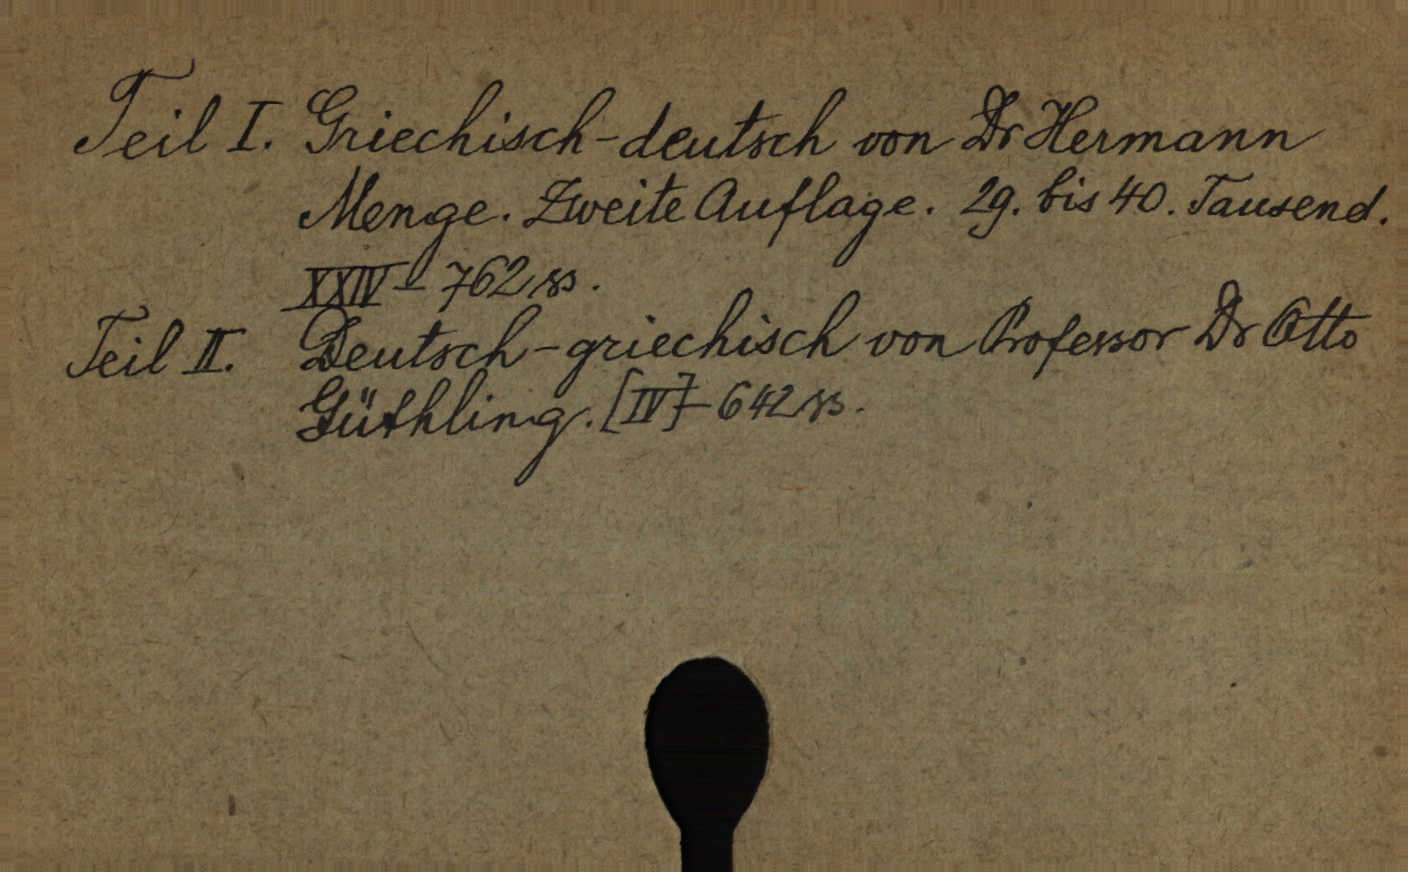 Teil I. Griechisch-deutsch von Dr Hermann
Menge. Zweite Auflage. 29. bis 40. Tausend.
XXIV - 762 ss.
Teil II. Deutsch-griechisch von Professor Dr Otto
Güthling. [IV] - 642 ss.